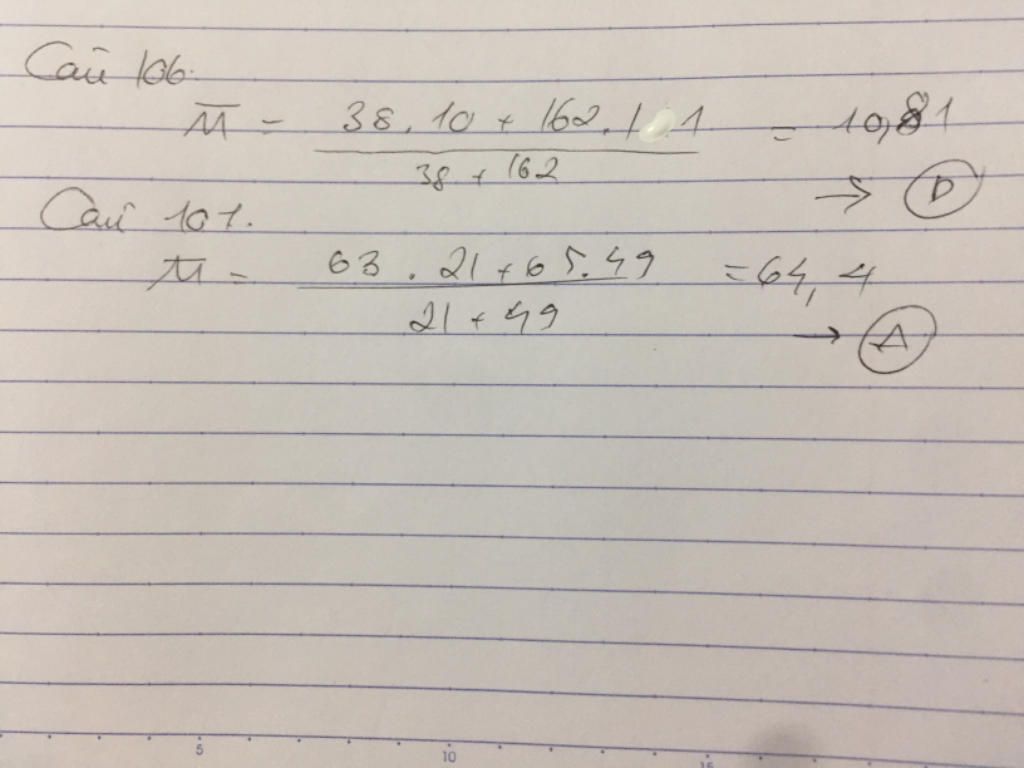 Câu 106.
M̅ = 38.10 + 162.11 / 38 + 162 = 10,81
→ D
Câu 107.
M̅ = 63.21 + 65.49 / 21 + 49 = 64,4
→ A
5 10 15